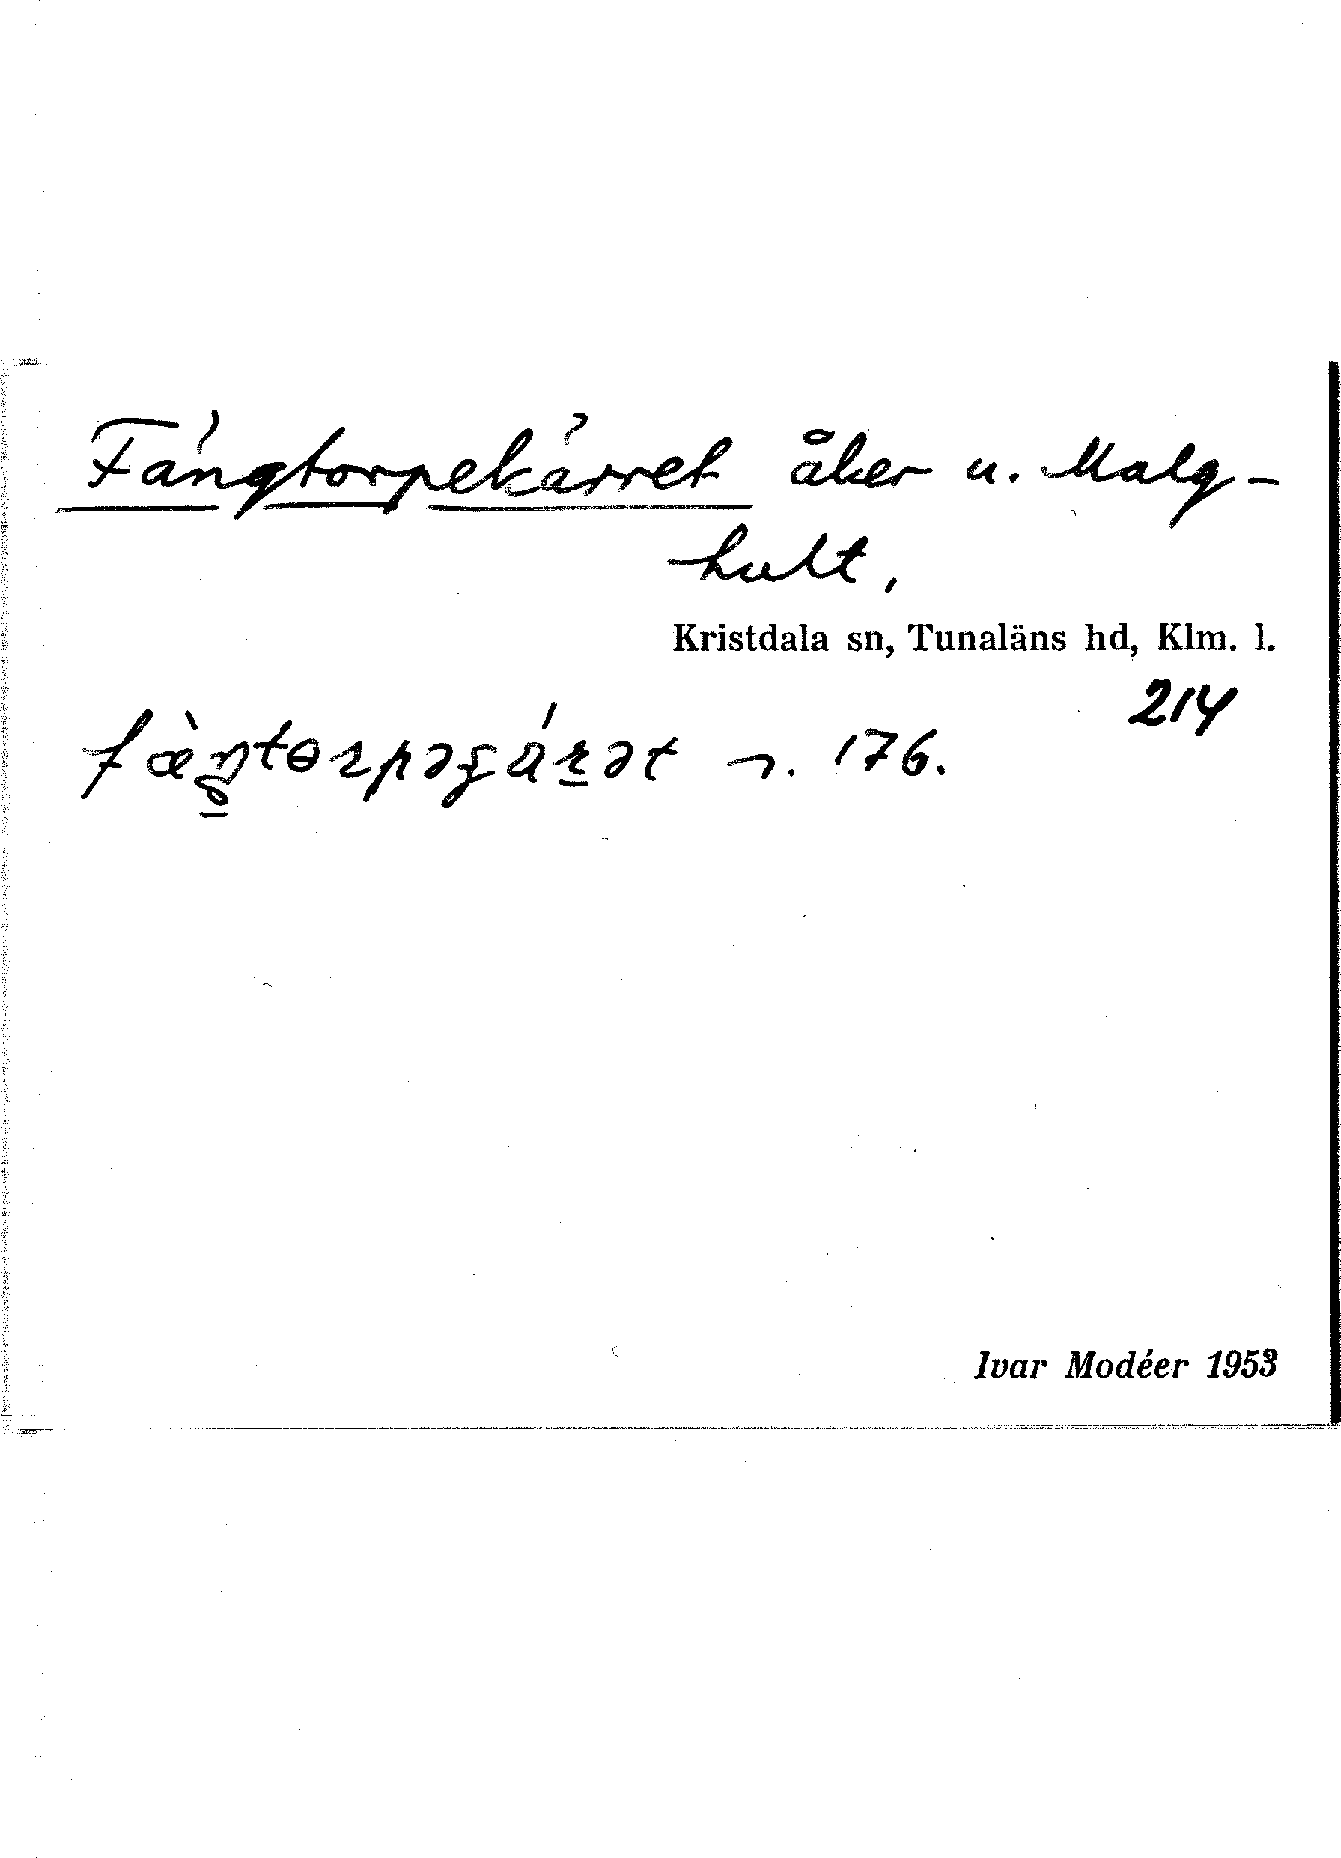 Fängtorpekärret åker u. Malg-
hult,
Kristdala sn, Tunaläns hd, Klm. l.
214
n. 176.
Ivar Modéer 1953